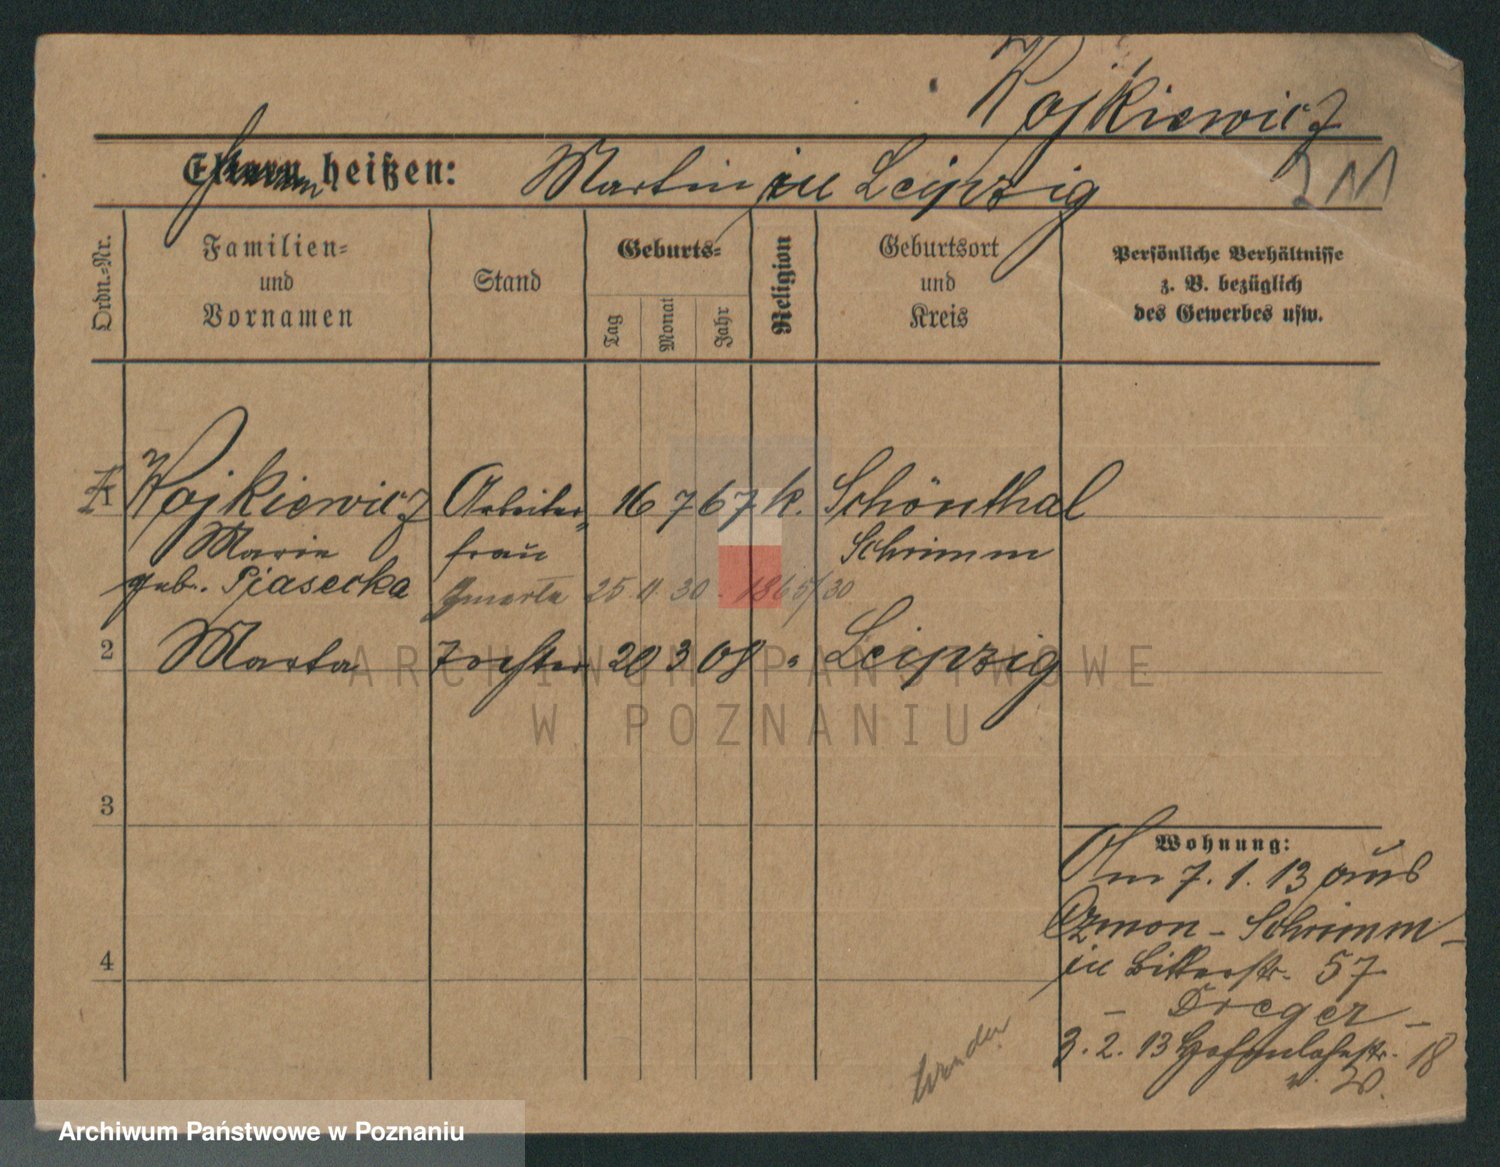 Wojkiewicz
Eltern heißen: Martin in Leipzig
2 M
Ordn.-Nr.
Familien-
und
Vornamen
Stand
Geburts-
Tag
Monat
Jahr
Religion
Geburtsort
und
Kreis
Persönliche Verhältnisse
z. B. bezüglich
des Gewerbes usw.
1 Wojkiewicz Arbeiter- 16 7 67 k. Schönthal
Marie frau Schrimm
geb. Piasecka
zmarła 25 11 30 - 1865/30
2 Marta Tochter 20 3 08 " Leipzig
3
4
Wohnung:
Am 7. 1. 13 aus
Czmon - Schrimm -
in Bitterstr. 57
- Dreger -
3. 2. 13 Hohenlohestr. 18
ARCHIWUM PAŃSTWOWE
W POZNANIU
Archiwum Państwowe w Poznaniu